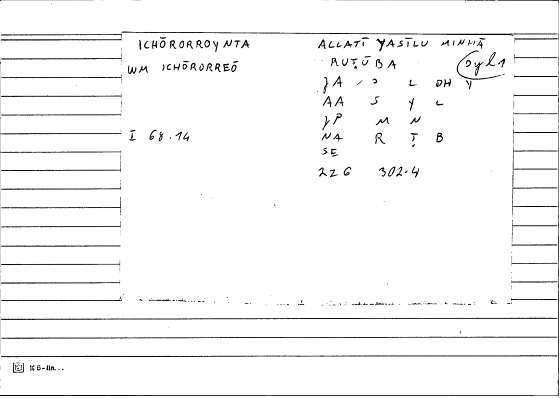 ICHŌRORROYNTA
WM ICHŌRORREŌ
I 68.14
ALLATĪ YASĪLU MINHĀ
RUṬŪBA
JA L DH Y
AA S Y L
JP M N
NA R Ṭ B
SE
226 302.4